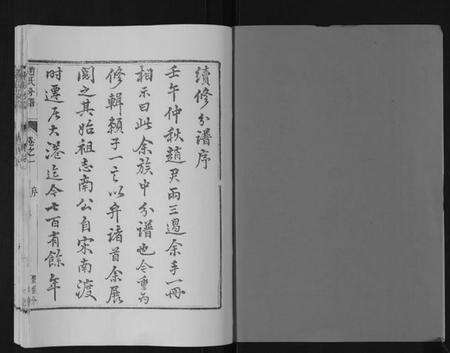 續修分譜序
壬午仲秋趙君雨三過余手一冊
相示曰此余族中分譜也今重為
修輯賴子一言以弁諸首余展
閱之其始祖志南公自宋南渡
時遷居大港迄今七百有餘年
趙氏分譜 卷之一 序